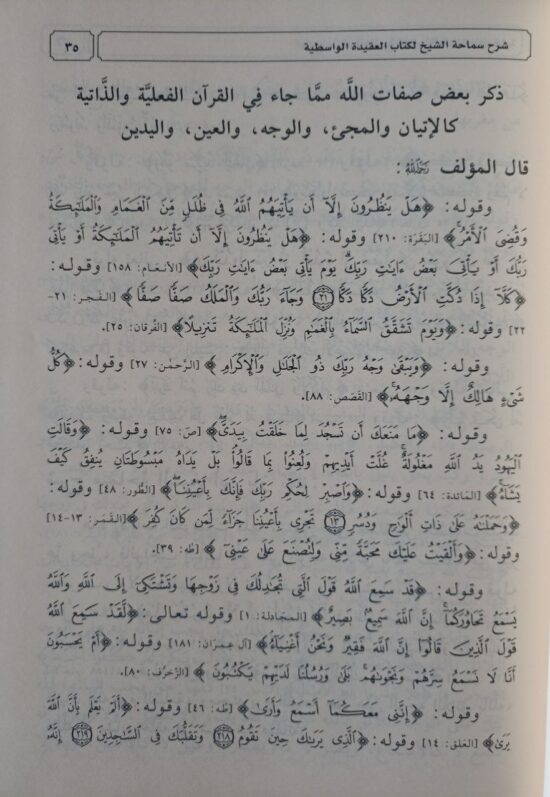 شرح سماحة الشيخ لكتاب العقيدة الواسطية ٣٥
ذكر بعض صفات اللَّه ممَّا جاء فِي القرآن الفعليَّة والذَّاتية
كالإتيان والمجئ، والوجه، والعين، واليدين
قال المؤلف رَحِمَهُ اللَّهُ:
وقوله: ﴿هَلْ يَنظُرُونَ إِلَّآ أَن يَأْتِيَهُمُ ٱللَّهُ فِى ظُلَلٍ مِّنَ ٱلْغَمَامِ وَٱلْمَلَٰٓئِكَةُ
وَقُضِىَ ٱلْأَمْرُ﴾ [البَقَرَة: ٢١٠] وقوله: ﴿هَلْ يَنظُرُونَ إِلَّآ أَن تَأْتِيَهُمُ ٱلْمَلَٰٓئِكَةُ أَوْ يَأْتِىَ
رَبُّكَ أَوْ يَأْتِىَ بَعْضُ ءَايَٰتِ رَبِّكَ يَوْمَ يَأْتِى بَعْضُ ءَايَٰتِ رَبِّكَ﴾ [الأنعَام: ١٥٨] وقوله:
﴿كَلَّآ إِذَا دُكَّتِ ٱلْأَرْضُ دَكًّا دَكًّا ٢١ وَجَآءَ رَبُّكَ وَٱلْمَلَكُ صَفًّا صَفًّا﴾ [الفَجر: ٢١-
٢٢] وقوله: ﴿وَيَوْمَ تَشَقَّقُ ٱلسَّمَآءُ بِٱلْغَمَٰمِ وَنُزِّلَ ٱلْمَلَٰٓئِكَةُ تَنزِيلًا﴾ [الفُرقان: ٢٥].
وقوله: ﴿وَيَبْقَىٰ وَجْهُ رَبِّكَ ذُو ٱلْجَلَٰلِ وَٱلْإِكْرَامِ﴾ [الرَّحمٰن: ٢٧] وقوله: ﴿كُلُّ
شَىْءٍ هَالِكٌ إِلَّا وَجْهَهُۥ﴾ [القَصَص: ٨٨].
وقوله: ﴿مَا مَنَعَكَ أَن تَسْجُدَ لِمَا خَلَقْتُ بِيَدَىَّ﴾ [صَ: ٧٥] وقوله: ﴿وَقَالَتِ
ٱلْيَهُودُ يَدُ ٱللَّهِ مَغْلُولَةٌ غُلَّتْ أَيْدِيهِمْ وَلُعِنُوا۟ بِمَا قَالُوا۟ بَلْ يَدَاهُ مَبْسُوطَتَانِ يُنفِقُ كَيْفَ
يَشَآءُ﴾ [المَائدة: ٦٤] وقوله: ﴿وَٱصْبِرْ لِحُكْمِ رَبِّكَ فَإِنَّكَ بِأَعْيُنِنَا﴾ [الطُّور: ٤٨] وقوله:
﴿وَحَمَلْنَٰهُ عَلَىٰ ذَاتِ أَلْوَٰحٍ وَدُسُرٍ ١٣ تَجْرِى بِأَعْيُنِنَا جَزَآءً لِّمَن كَانَ كُفِرَ﴾ [القَمَر: ١٣-١٤]
وقوله: ﴿وَأَلْقَيْتُ عَلَيْكَ مَحَبَّةً مِّنِّى وَلِتُصْنَعَ عَلَىٰ عَيْنِىٓ﴾ [طٰه: ٣٩].
وقوله: ﴿قَدْ سَمِعَ ٱللَّهُ قَوْلَ ٱلَّتِى تُجَٰدِلُكَ فِى زَوْجِهَا وَتَشْتَكِىٓ إِلَى ٱللَّهِ وَٱللَّهُ
يَسْمَعُ تَحَاوُرَكُمَآ إِنَّ ٱللَّهَ سَمِيعٌۢ بَصِيرٌ﴾ [المجَادلة: ١] وقوله تعالى: ﴿لَّقَدْ سَمِعَ ٱللَّهُ
قَوْلَ ٱلَّذِينَ قَالُوٓا۟ إِنَّ ٱللَّهَ فَقِيرٌ وَنَحْنُ أَغْنِيَآءُ﴾ [آل عِمرَان: ١٨١] وقوله: ﴿أَمْ يَحْسَبُونَ
أَنَّا لَا نَسْمَعُ سِرَّهُمْ وَنَجْوَىٰهُم بَلَىٰ وَرُسُلُنَا لَدَيْهِمْ يَكْتُبُونَ﴾ [الزّخرُف: ٨٠].
وقوله: ﴿إِنَّنِى مَعَكُمَآ أَسْمَعُ وَأَرَىٰ﴾ [طٰه: ٤٦] وقوله: ﴿أَلَمْ يَعْلَم بِأَنَّ ٱللَّهَ
يَرَىٰ﴾ [العَلق: ١٤] وقوله: ﴿ٱلَّذِى يَرَىٰكَ حِينَ تَقُومُ ٢١٨ وَتَقَلُّبَكَ فِى ٱلسَّٰجِدِينَ ٢١٩ إِنَّهُۥ